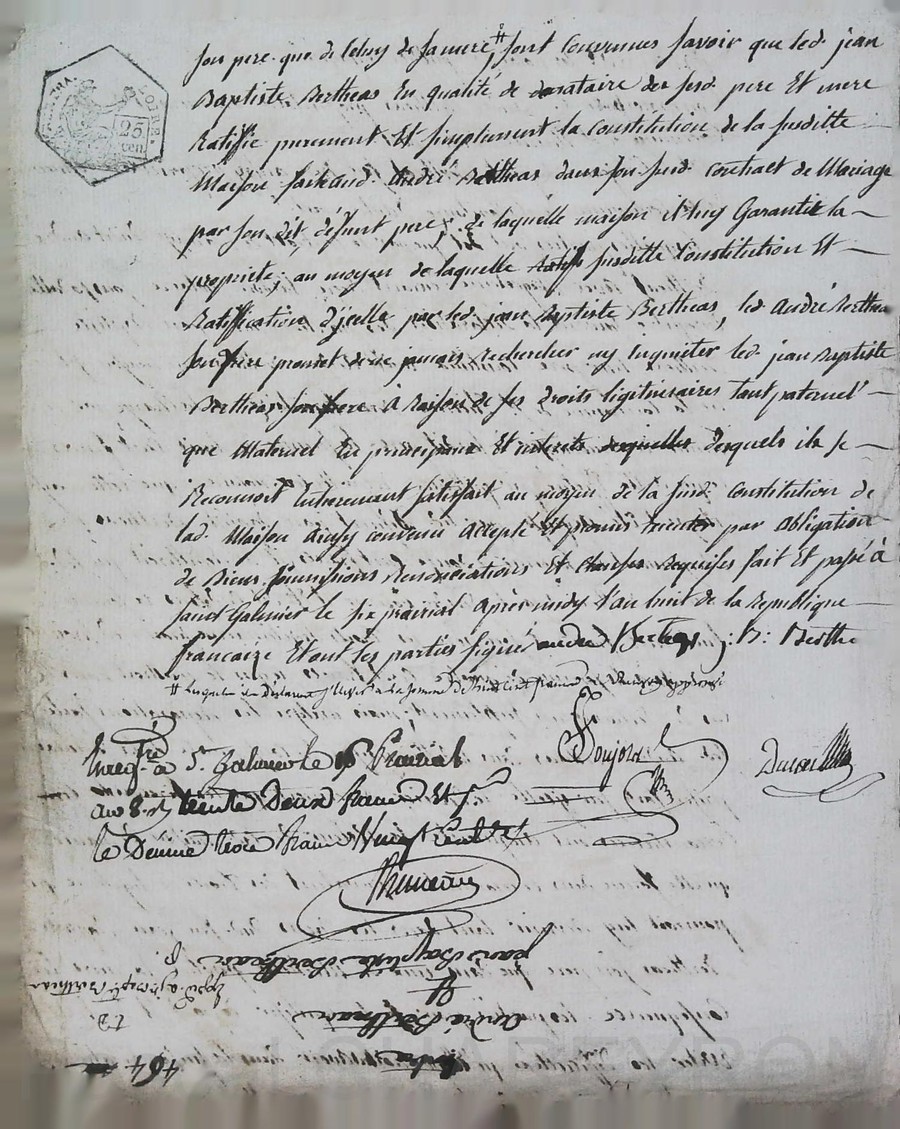 25
cen.
son pere que de Celuy de sa mere, # sont Convenues savoir que led. jean
Baptiste Bertheas En qualité de donataire des susd. pere Et mere
Ratiffie purement Et simplement la Constitution de la susditte
Maison faite aud. André Bertheas dans son susd. Contract de Mariage
par son dit défunt pere, de laquelle maison il luy Garantit la
propriete; au moyen de laquelle susditte Constitution Et
Ratiffication d'jcelle par led. jean Baptiste Bertheas, led. André Berthea
son frere promet de ne jamais rechercher ny Enquieter led. jean Baptiste
Bertheas son frere à Raison de ses droits légitimaires Tant paternel
que Maternel En principaux Et interets desquels il se
Reconnoit Entierement satisfait au moyen de la susd. Constitution de
lad. Maison ainsy convenu accepté Et promis par obligation
de Biens, soumissions renonciations Et Clauses Requises fait Et passé à
saint Galmier le six prairial après midy l'an huit de la Republique
francaize Et ont les parties signé andre Bertheas j: B: Berthe
# Lesquels
Doujoux
Enreg.tré a St. Galmier le 16 Prairial
an 8 trente Deux francs Et pr
le Dixieme trois francs Vingt Cent.
jean Baptiste Bertheas
&
André Bertheas
464